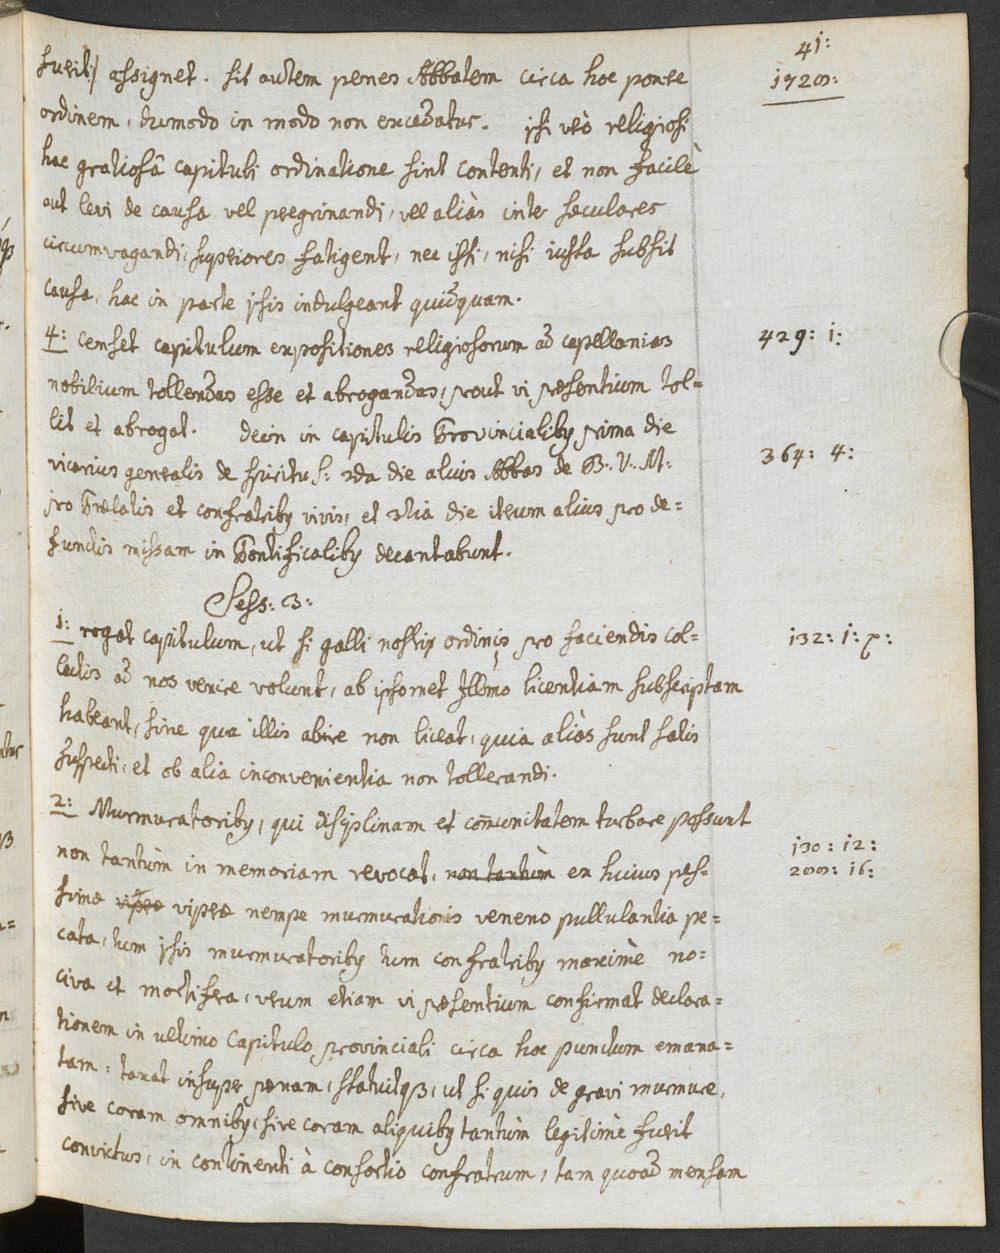 41:
1720:
fuerit, assignet. sit autem penes Abbatem circa hoc ponere
ordinem, dummodo in modo non excedatur. ipsi verò religiosi
hac gratiosâ capituli ordinatione sint contenti, et non facilè
aut levi de causa vel peregrinandi, vel aliàs inter saeculares
circumvagandi, superiores fatigent, nec issi, nisi iusta subsit
causa, hac in parte ipsis indulgeant quidquam.
4: Censet capitulum expositiones religiosorum ad capellanias
429: 1:
nobilium tollendas esse et abrogandas, prout vi praesentium tol=
lit et abrogat. Dein in capitulis Provincialiby prima die
364: 4:
vicarius generalis de spiritu S: 2da die alius Abbas de B. V. M:
pro Praelatis et confratriby vivis, et 3tia die iterum alius pro de=
functis missam in Pontificaliby decantabunt.
Sess: 3:
1: rogat capitulum, ut si galli nostri ordinis pro faciendis col=
132: 1: p:
lectis ad nos venire volunt, ab ipsomet Illmo licentiam subscriptam
habeant, sine qua illis abire non liceat, quia aliàs sunt satis
suspecti, et ob alia inconvenientia non tollerandi.
2: Murmuratoriby, qui disciplinam et comunitatem turbare possunt
130: 12:
200: 16:
non tantùm in memoriam revocat, non tantùm ex huius pes=
simae viperae viperae nempe murmurationis veneno pullulantia pe=
cata, tum ipsis murmuratoriby tum confratriby maximè no=
civa et mortifera, verum etiam vi praesentium confirmat declara=
tionem in ultimo Capitulo provinciali circa hoc punctum emana=
tam: taxat insuper poenam, statuitq3, ut si quis de gravi murmure,
sive coram omniby, sive coram aliquiby tantùm legitimè fuerit
convictus, in continenti à consortio confratrum, tam quoad mensam